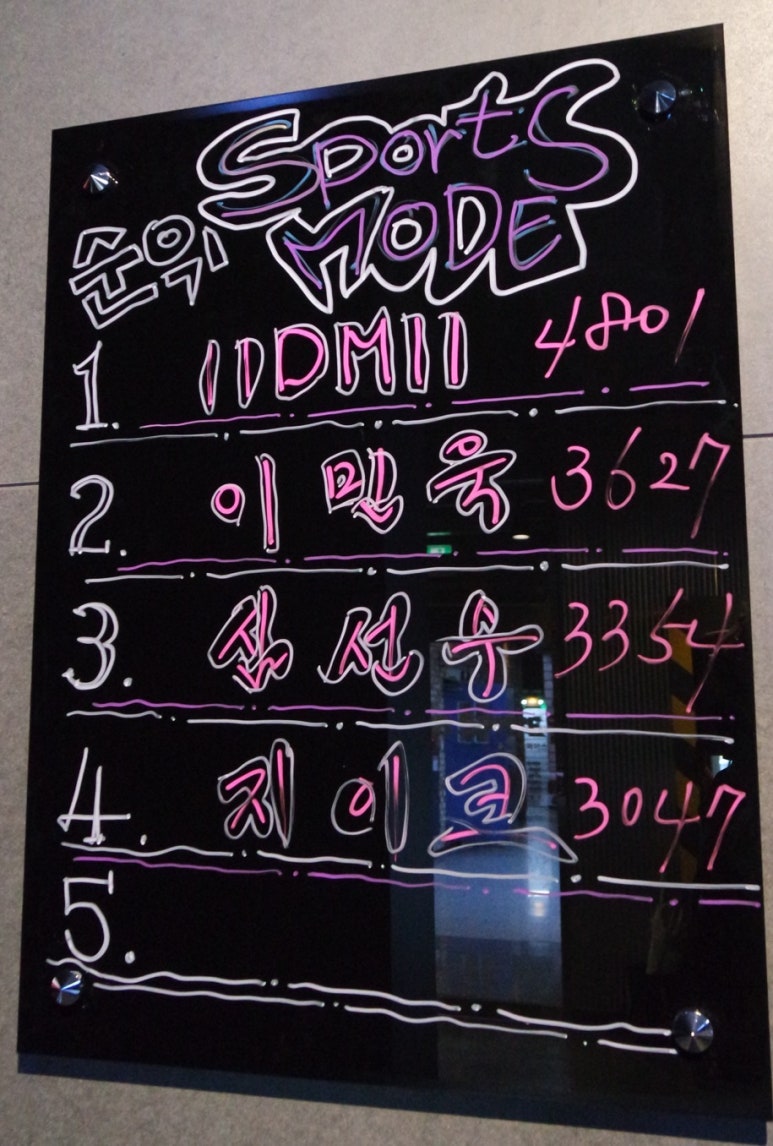 Sports
MODE
순위
1. IIDMII 4801
2. 이민욱 3627
3. 심선우 3354
4. 지이코 3047
5.